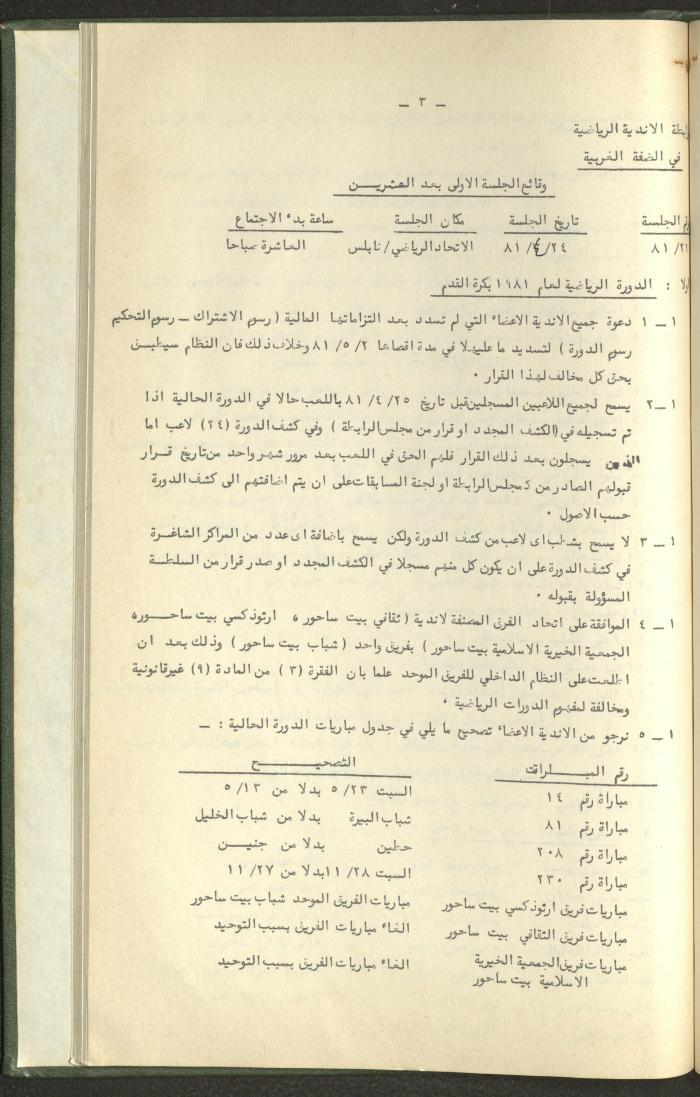 ـ ٣ ـ
الاندية الرياضية
في الضفة الغربية
وقائع الجلسة الاولى بعد العشريـــن
الجلسة تاريخ الجلسة مكان الجلسة ساعة بدء الاجتماع
٨١/٢١ ٨١/٤/٢٤ الاتحاد الرياضي/نابلس العاشرة صباحا
: الدورة الرياضية لعام ١٩٨١ بكرة القدم
١ ــ ١ دعوة جميع الاندية الاعضاء التي لم تسدد بعد التزاماتها المالية ( رسوم الاشتراك ــ رسوم التحكيم
رسوم الدورة ) لتسديد ما عليها في مدة اقصاها ٨١/٥/٢ وخلاف ذلك فان النظام سيطبـق
بحق كل مخالف لهذا القرار ٠
١ ــ ٢ يسمح لجميع اللاعبين المسجلين قبل تاريخ ٨١/٤/٢٥ باللعب حالا في الدورة الحالية اذا
تم تسجيله في (الكشف المجدد او قرار من مجلس الرابطة ) وفي كشف الدورة (٢٤) لاعب اما
الذين يسجلون بعد ذلك القرار فلهم الحق في اللعب بعد مرور شهر واحد من تاريخ قــرار
قبولهم الصادر من مجلس الرابطة او لجنة المسابقات على ان يتم اضافتهم الى كشف الدورة
حسب الاصول ٠
١ ــ ٣ لا يسمح بشطب اى لاعب من كشف الدورة ولكن يسمح باضافة اى عدد من المراكز الشاغـرة
في كشف الدورة على ان يكون كل منهم مسجلا في الكشف المجدد او صدر قرار من السلطـة
المسؤولة بقبوله ٠
١ ــ ٤ الموافقة على اتحاد الفرق المصنفة لاندية ( ثقافي بيت ساحور ، ارثوذكسي بيت ساحــور،
الجمعية الخيرية الاسلامية بيت ساحور ) بفريق واحد ( شباب بيت ساحور ) وذلك بعد ان
اطلعت على النظام الداخلي للفريق الموحد علما بان الفقرة (٣) من المادة (٩) غير قانونية
ومخالفة لمفهوم الدورات الرياضية ٠
١ ــ ٥ نرجو من الاندية الاعضاء تصحيح ما يلي في جدول مباريات الدورة الحالية : ــ
رقم المبــــاراة التصحيـــــــح
مباراة رقم ١٤ السبت ٥/٢٣ بدلا من ٥/١٣
مباراة رقم ٨١ شباب البيرة بدلا من شباب الخليل
مباراة رقم ٢٠٨ حطين بدلا من جنيـــن
مباراة رقم ٢٣٠ السبت ١١/٢٨ بدلا من ١١/٢٧
مباريات فريق ارثوذكسي بيت ساحور مباريات الفريق الموحد شباب بيت ساحور
مباريات فريق الثقافي بيت ساحور الغاء مباريات الفريق بسبب التوحيد
مباريات فريق الجمعية الخيرية الغاء مباريات الفريق بسبب التوحيد
الاسلامية بيت ساحور